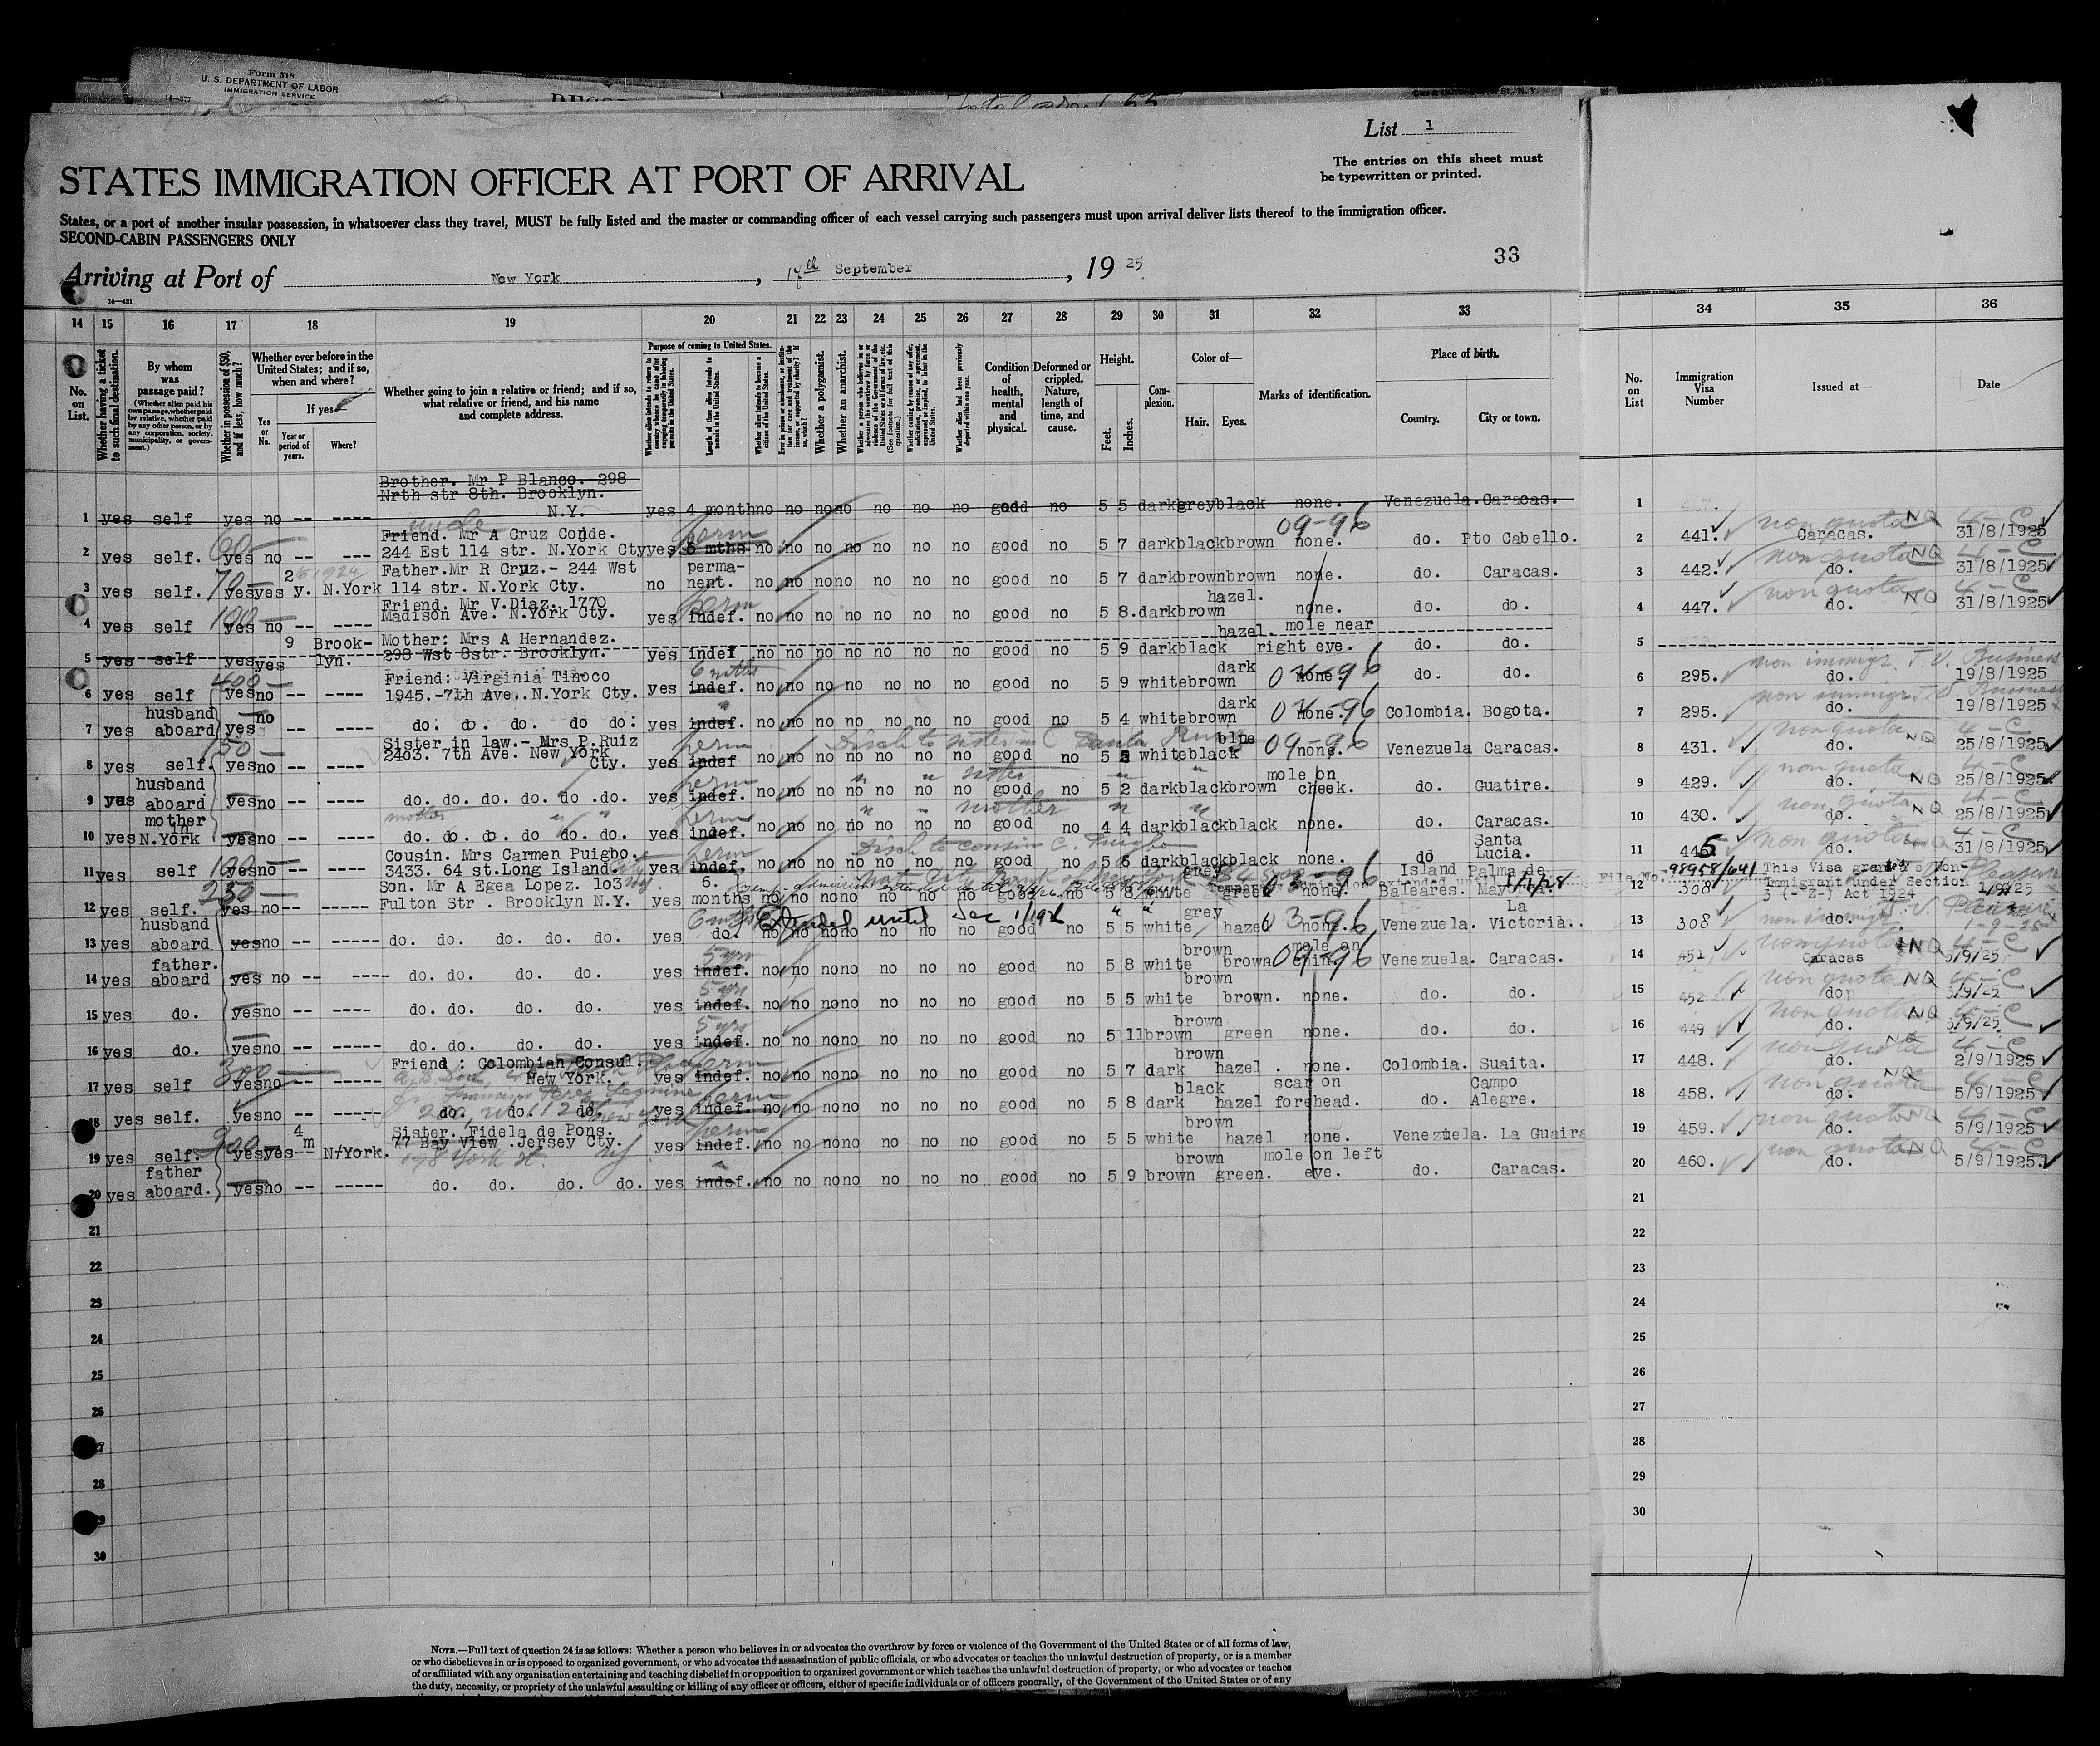 Form 518
U. S. DEPARTMENT OF LABOR
IMMIGRATION SERVICE
14—577
List 1
The entries on this sheet must
be typewritten or printed.
STATES IMMIGRATION OFFICER AT PORT OF ARRIVAL
States, or a port of another insular possession, in whatsoever class they travel, MUST be fully listed and the master or commanding officer of each vessel carrying such passengers must upon arrival deliver lists thereof to the immigration officer.
SECOND-CABIN PASSENGERS ONLY
33
Arriving at Port of New York, 17th September, 19 25
14—431
14 15 16 17 18 19 20 21 22 23 24 25 26 27 28 29 30 31 32 33 34 35 36
No. on List.
Whether having a ticket to such final destination.
By whom was passage paid?
(Whether alien paid his own passage, whether paid by relative, whether paid by any other person, or by any corporation, society, municipality, or government.)
Whether in possession of $50, and if less, how much?
Whether ever before in the United States; and if so, when and where?
Yes or No.
If yes—
Year or period of years.
Where?
Whether going to join a relative or friend; and if so, what relative or friend, and his name and complete address.
Purpose of coming to United States.
Whether alien intends to return to country whence he came after engaging temporarily in laboring pursuits in the United States.
Length of time alien intends to remain in the United States.
Whether alien intends to become a citizen of the United States.
Whether a polygamist.
Whether an anarchist.
Condition of health, mental and physical.
Deformed or crippled. Nature, length of time, and cause.
Height.
Feet.
Inches.
Complexion.
Color of—
Hair.
Eyes.
Marks of identification.
Place of birth.
Country.
City or town.
No. on List
Immigration Visa Number
Issued at—
Date
Brother. Mr P Blanco.-298
Nrth str 8th. Brooklyn.
1 yes self yes no -- ---- N.Y. yes 4 month no no no no no no no good no 5 5 dark grey black none. Venezuela. Caracas. 1
uncle perm 09-96 non quota NQ 4-C
Friend. Mr A Cruz Conde.
2 yes self. 60 yes no -- --- 244 Est 114 str. N.York Cty yes 6 mths no no no no no no no good no 5 7 dark black brown none. do. Pto Cabello. 2 441. Caracas. 31/8/1925
Father. Mr R Cruz.- 244 Wst perma- non quota NQ 4-C
3 yes self. 70 yes yes 2 y. N.York 114 str. N.York Cty. no nent. no no no no no no no good no 5 7 dark brown brown none. do. Caracas. 3 442. do. 31/8/1925
Friend. Mr. V.Diaz. 1770 perm hazel. non quota NQ 4-C
4 yes self 100 yes no -- ---- Madison Ave. N.York Cty. yes indef. no no no no no no no good no 5 8. dark brown none. do. do. 4 447. do. 31/8/1925
9 Brook- Mother: Mrs A Hernandez. hazel. mole near
5 yes self yes yes lyn. 298 Wst 8str. Brooklyn. yes indef no no no no no no no good no 5 9 dark black right eye. do. do. 5
400 Friend: Virginia Tinoco 6 mths dark non immigr. T.V. Business
6 yes self yes no -- ---- 1945.-7th Ave. N.York Cty. yes indef. no no no no no no no good no 5 9 white brown none. do. do. 6 295. do. 19/8/1925
husband dark non immigr. Business
7 yes aboard yes no -- ---- do: do. do. do do: yes indef. no no no no no no no good no 5 4 white brown none. Colombia. Bogota. 7 295. do. 19/8/1925
150 Sister in law.- Mrs P.Ruiz perm blue 09-96 non quota NQ 4-C
8 yes self. yes no -- ---- 2403. 7th Ave. New York Cty. yes indef no no no no no no no good no 5 white black none. Venezuela Caracas. 8 431. do. 25/8/1925
husband perm sister mole on non quota NQ 4-C
9 yes aboard yes no -- ---- do. do. do. do. do .do. yes indef. no no no no no no no good no 5 2 dark black brown cheek. do. Guatire. 9 429. do. 25/8/1925
mother in mother perm mother non quota NQ 4-C
10 yes N.York yes no -- ---- do. do. do. do do. do. yes indef. no no no no no no no good no 4 4 dark black black none. do. Caracas. 10 430. do. 25/8/1925
Cousin. Mrs Carmen Puigbo. perm Disch to cousin C. Puigbo Santa non quota 4-C
11 yes self 100 yes no -- ---- 3433. 64 st. Long Island yes indef. no no no no no no no good no 5 6 dark black black none. do Lucia. 11 445 do. 31/8/1925
250 Son. Mr A Egea Lopez. 103 6. Nat City Bank of New York grey 03-96 Island Palma de 1/1/28 File No. 98958/641 This Visa granted as Non-Immigrant under Section 3 (-2-) Act 1924 Pleasure
12 yes self. yes no -- ----- Fulton Str . Brooklyn N.Y. yes months no no no no no no no good no 5 8 white green none. Baleares. Mayorca. 12 308 1/9/25
husband 6 mths Extended until Dec 1/1926 grey 03-96 La Pleasure
13 yes aboard yes no -- ----- do. do. do. do. do. yes do. no no no no no no no good no 5 5 white hazel none. Venezuela. Victoria.. 13 308 do. 1-9-25
father. 5 yrs brown mole on 09-96 non quota NQ 4-C
14 yes aboard yes no -- ---- do. do. do. do. yes indef. no no no no no no no good no 5 8 white brown chin. Venezuela. Caracas. 14 451 Caracas 5/9/25
5 yrs brown non quota NQ 4-C
15 yes do. yes no -- ---- do. do. do. do. yes indef. no no no no no no no good no 5 5 white brown. none. do. do. 15 452 do. 5/9/25
5 yrs brown. non quota NQ 4-C
16 yes do. yes no -- ---- do. do. do. do. yes indef. no no no no no no no good no 5 11 brown green none. do. do. 16 449 do. 5/9/25
300 Friend : Colombian Consul. perm brown non quota NQ 4-C
17 yes self yes no -- ----- New York. yes indef. no no no no no no no good no 5 7 dark hazel . none. Colombia. Suaita. 17 448. do. 2/9/1925
perm black scar on Campo non quota NQ 4-C
18 yes self. yes no -- ----- do. do. do. yes indef. no no no no no no no good no 5 8 dark hazel forehead. do. Alegre. 18 458. do. 5/9/1925
4 Sister. Fidela de Pons. perm brown non quota NQ 4-C
19 yes self. yes yes m N/York. 77 Bay View .Jersey Cty. yes indef. no no no no no no no good no 5 5 white hazel none. Venezuela. La Guaira 19 459. do. 5/9/1925
198 York St. NJ
father brown mole on left non quota NQ 4-C
20 yes aboard. yes no -- ----- do. do. do. do. yes indef. no no no no no no no good no 5 9 brown green. eye. do. Caracas. 20 460. do. 5/9/1925.
21 21
22 22
23 23
24 24
25 25
26 26
27 27
28 28
29 29
30 30
NOTE.—Full text of question 24 is as follows: Whether a person who believes in or advocates the overthrow by force or violence of the Government of the United States or of all forms of law,
or who disbelieves in or is opposed to organized government, or who advocates the assassination of public officials, or who advocates or teaches the unlawful destruction of property, or is a member
of or affiliated with any organization entertaining and teaching disbelief in or opposition to organized government or which teaches the unlawful destruction of property, or who advocates or teaches
the duty, necessity, or propriety of the unlawful assaulting or killing of any officer or officers, either of specific individuals or of officers generally, of the Government of the United States or of any